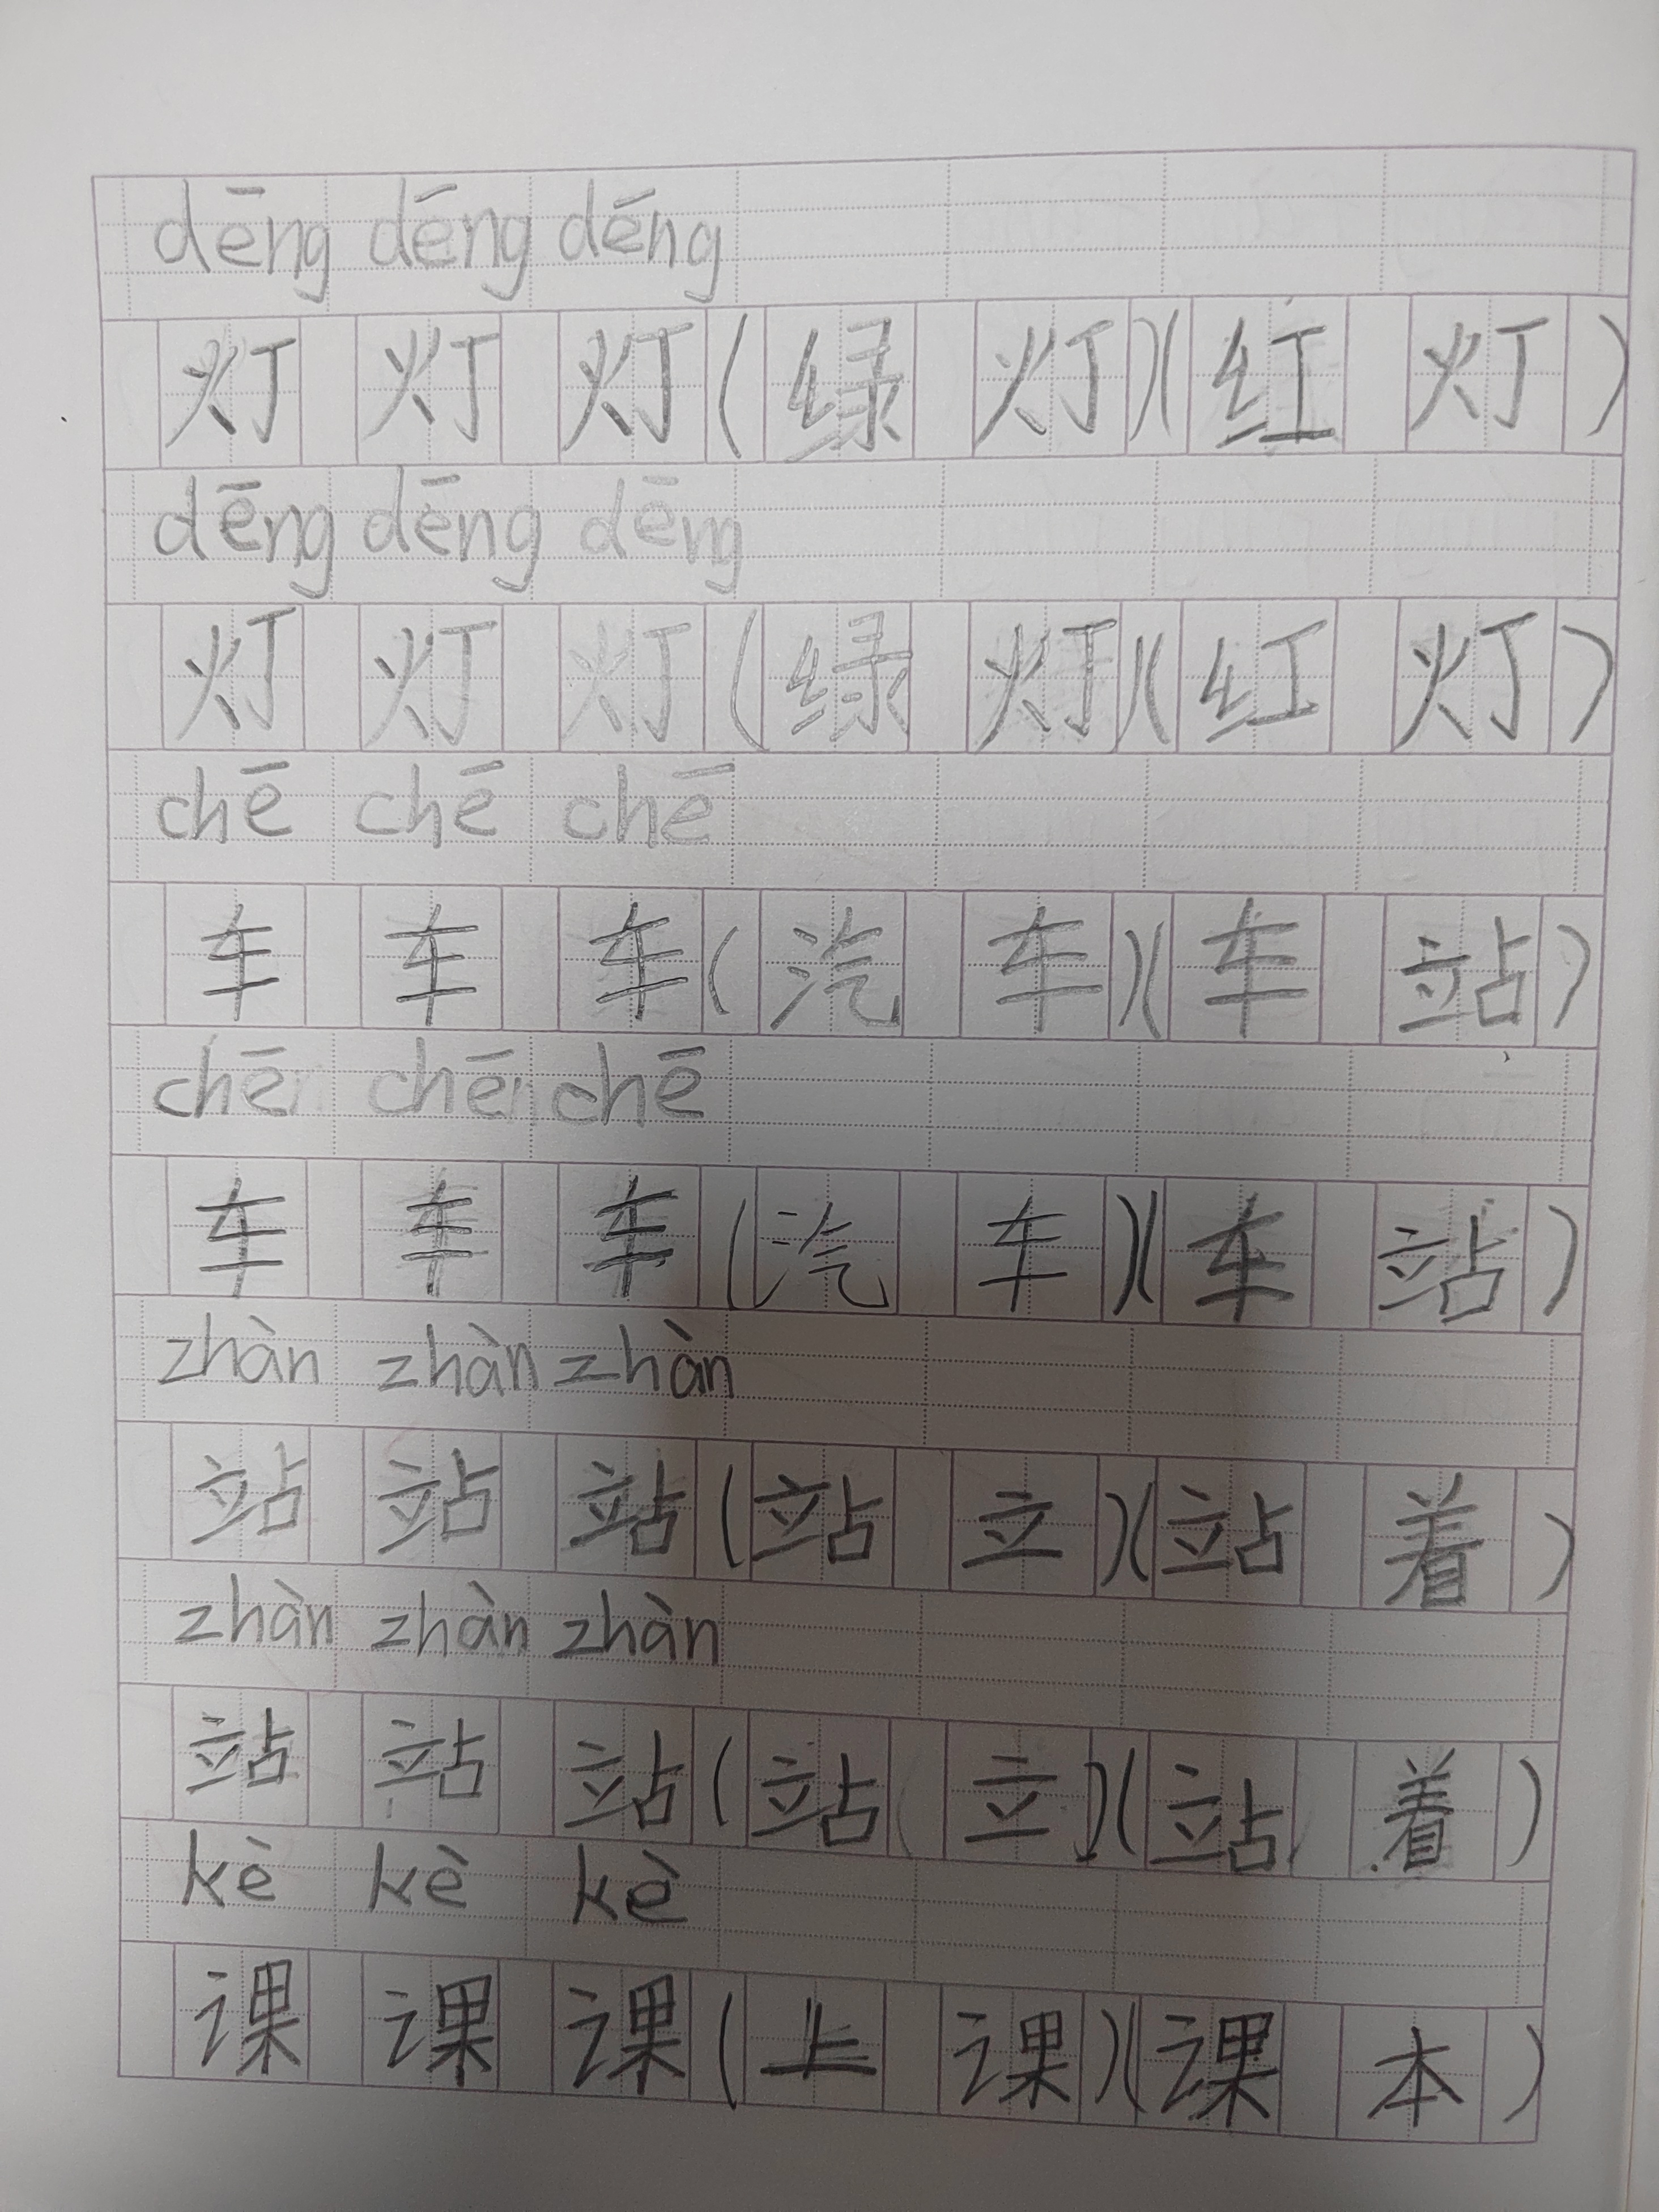 dēng dēng dēng
灯 灯 灯(绿 灯)(红 灯)
dēng dēng dēng
灯 灯 灯(绿 灯)(红 灯)
chē chē chē
车 车 车(汽 车)(车 站)
chē chē chē
车 车 车(汽 车)(车 站)
zhàn zhàn zhàn
站 站 站(站 立)(站 着)
zhàn zhàn zhàn
站 站 站(站 立)(站 着)
kè kè kè
课 课 课(上 课)(课 本)